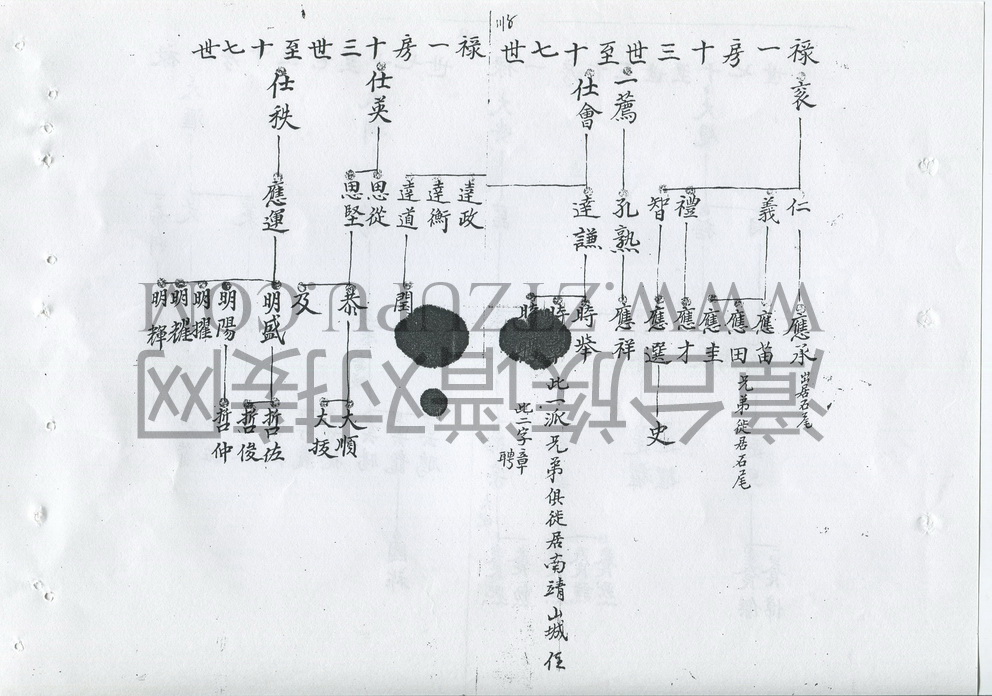 禄一房十三世至十七世
袤
仁
義
禮
智
應承
出居石尾
應苗
應田
應圭
兄弟徙居石尾
應才
應選
史
二薦
孔熟
應祥
仕會
達謙
時舉
時
時
此一派兄弟俱徙居南靖山城住
此二字章聘
禄一房十三世至十七世
達政
達衡
達道
閏
仕英
思從
思堅
泰
及
大順
大援
仕秩
應運
明盛
明陽
明擢
明耀
明輝
哲佐
哲俊
哲仲
WWW.ZIZUPU.COM
漳台族谱对接网